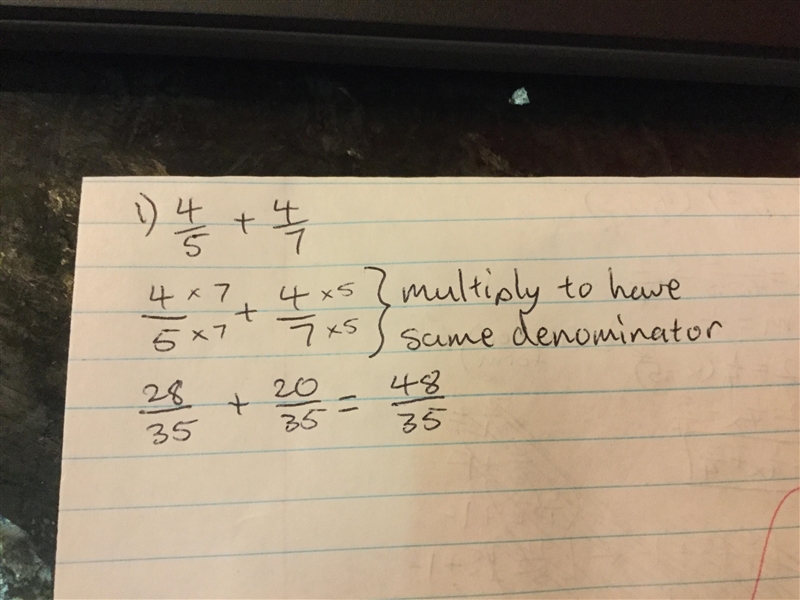 1) 4/5 + 4/7
4 × 7 / 5 × 7 + 4 × 5 / 7 × 5 } multiply to have
same denominator
28/35 + 20/35 = 48/35